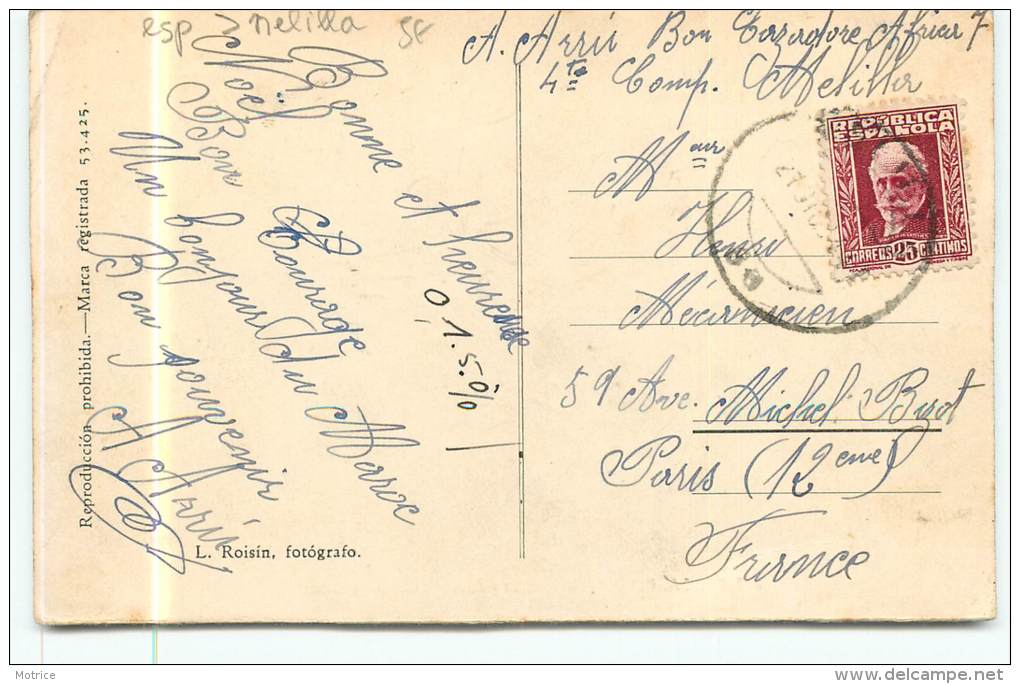 esp > Melilla
A. Arrú Bon Cazadore Africa 7
4ta Comp. Melilla
Meur
Henri
Mécanicien
59 Ave. Michel Bizot
Paris (12eme)
France
REPUBLICA
ESPAÑOLA
CORREOS 25 CENTIMOS
Bonne et heureuse
Noël
Bon Courage
Un bonjour du Maroc
Bon souvenir
A Arrú
0.1.5%
Reproducción prohibida.—Marca registrada 53.425.
L. Roisín, fotógrafo.
Motrice
www.delcampe.net